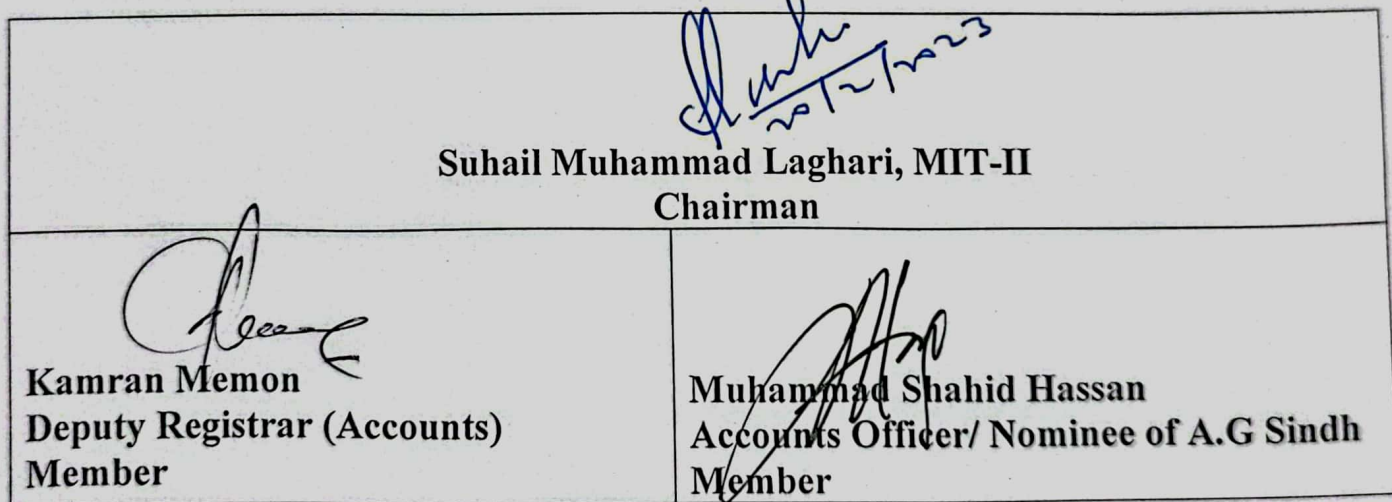 20/2/2023
Suhail Muhammad Laghari, MIT-II
Chairman
Kamran Memon
Deputy Registrar (Accounts)
Member
Muhammad Shahid Hassan
Accounts Officer/ Nominee of A.G Sindh
Member